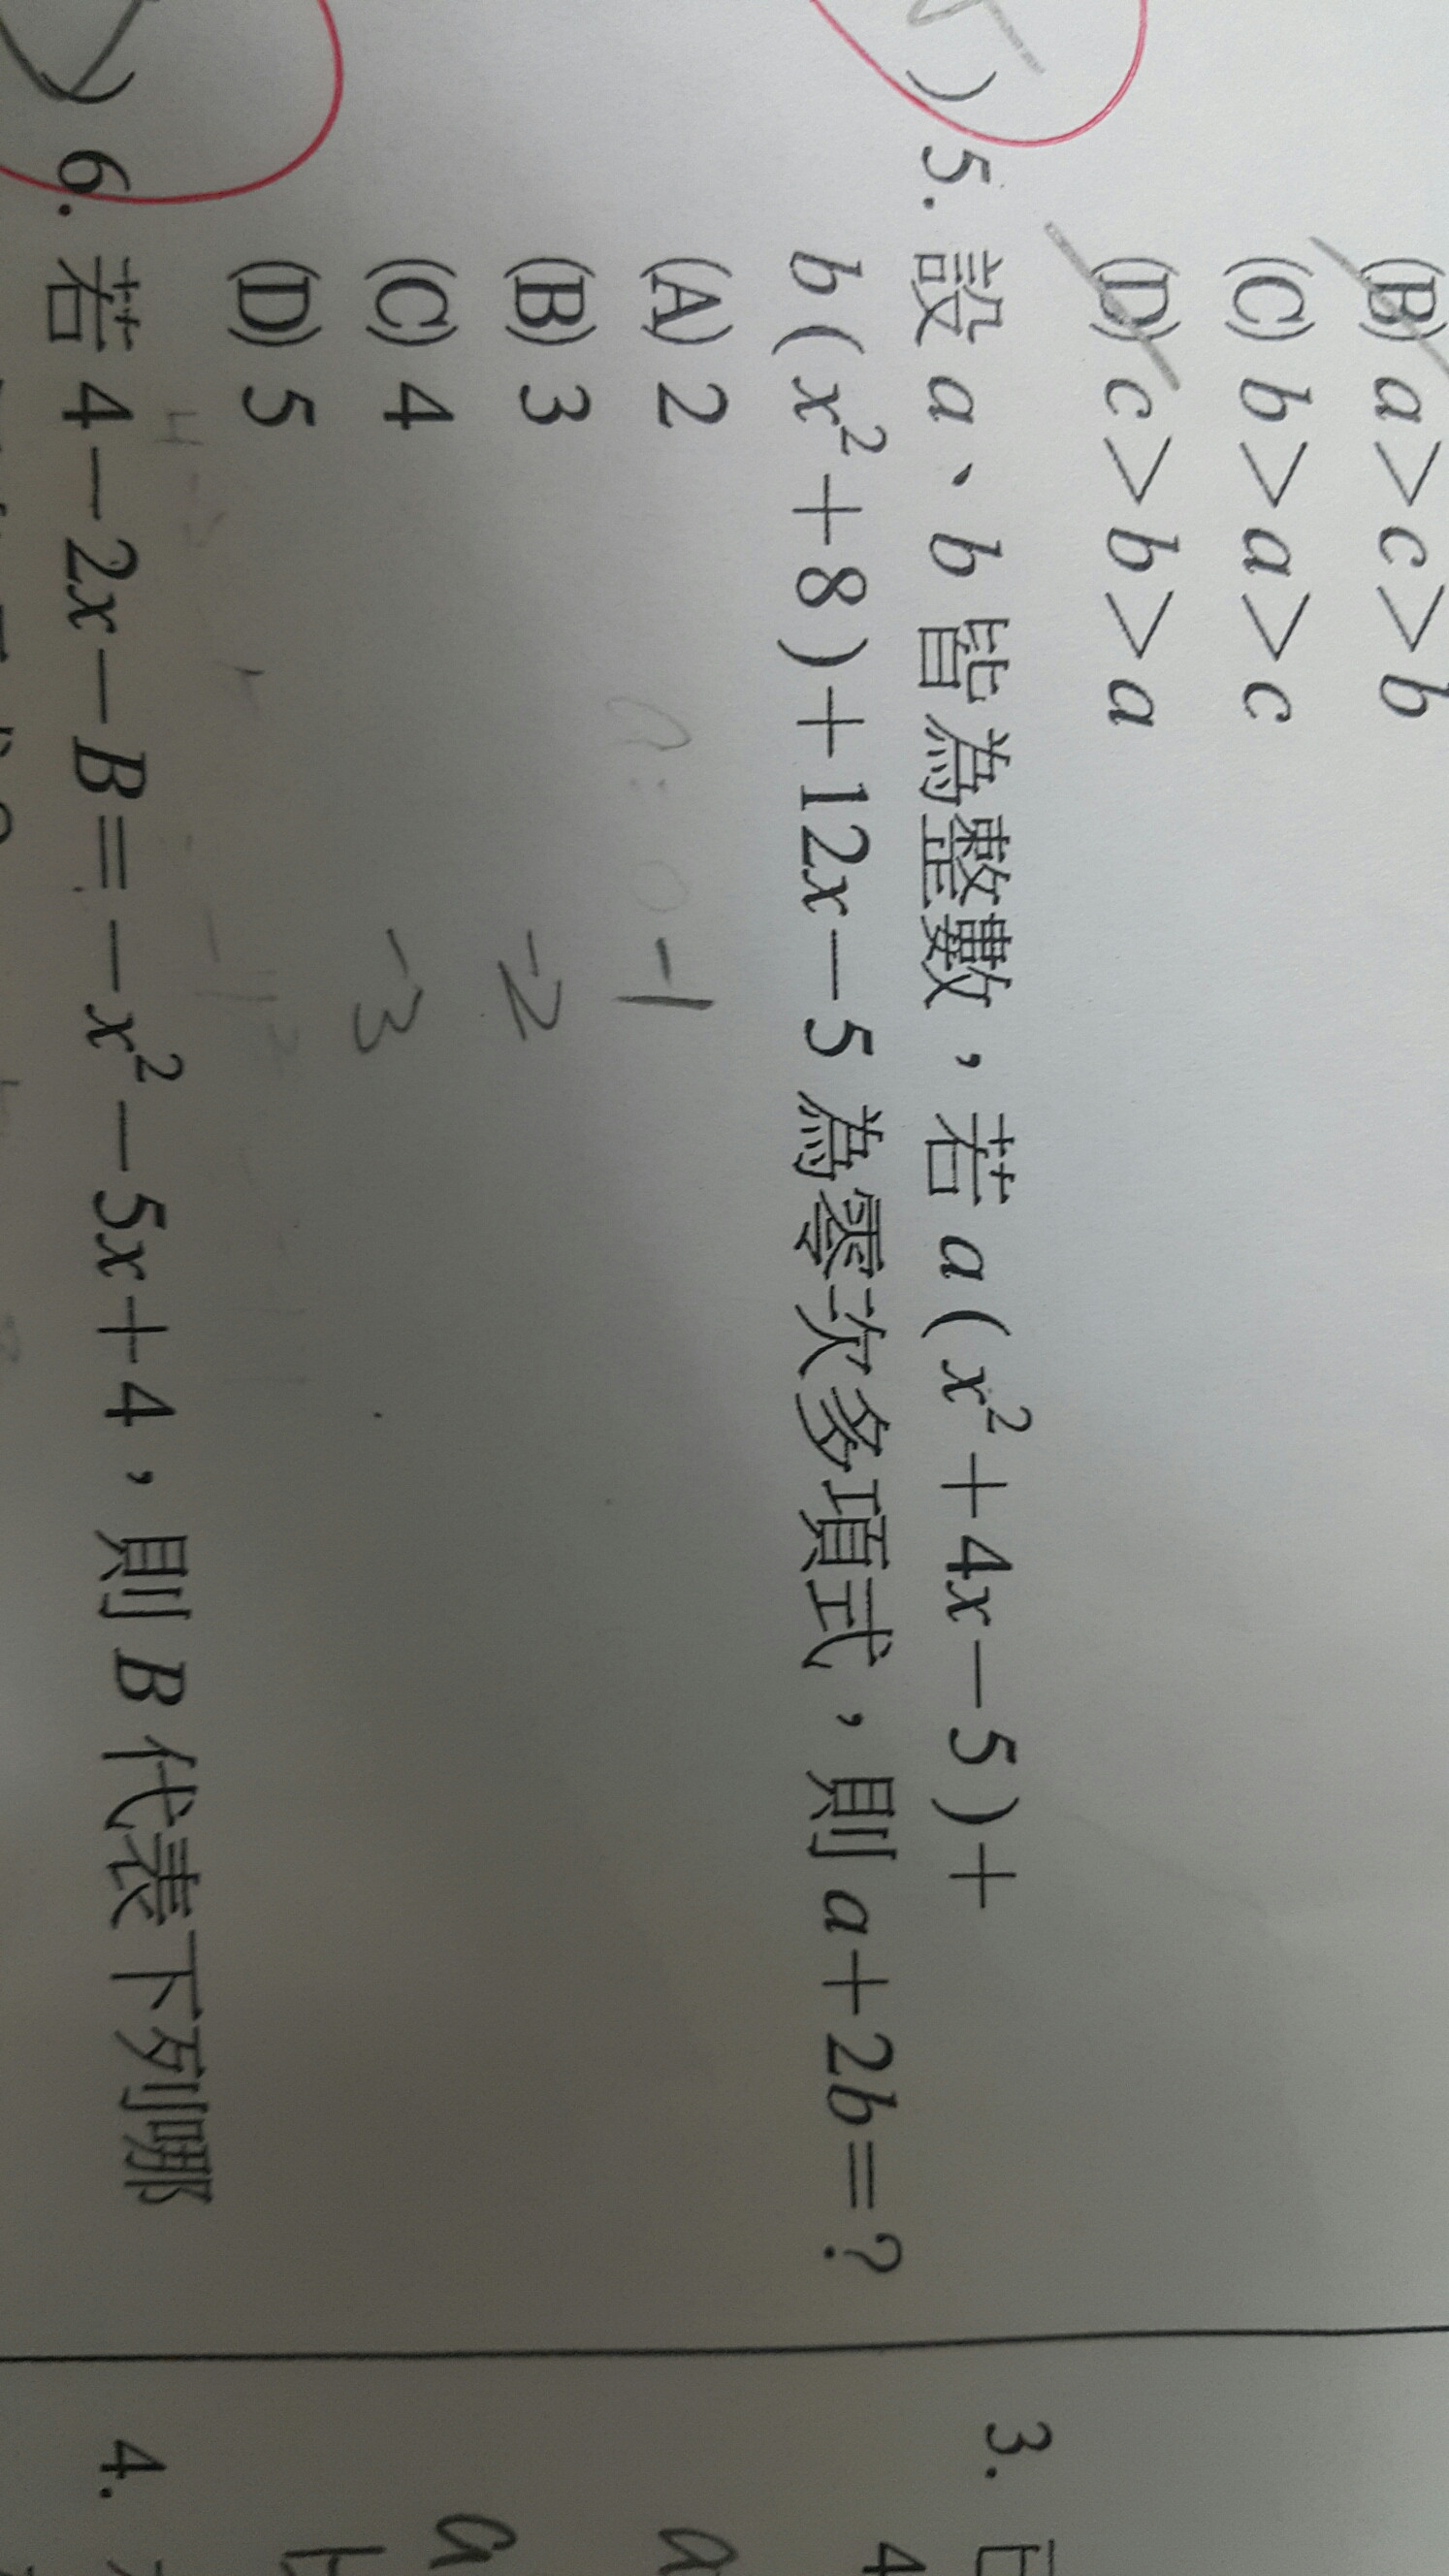 (B) a>c>b
(C) b>a>c
(D) c>b>a
) 5. 設 a、b 皆為整數，若 a(x²+4x－5)+
b(x²+8)+12x－5 為零次多項式，則 a+2b=?
(A) 2
(B) 3
(C) 4
(D) 5
-1
-2
-3
) 6. 若 4－2x－B=－x²－5x+4，則 B 代表下列哪
3.
4
a
a
4.